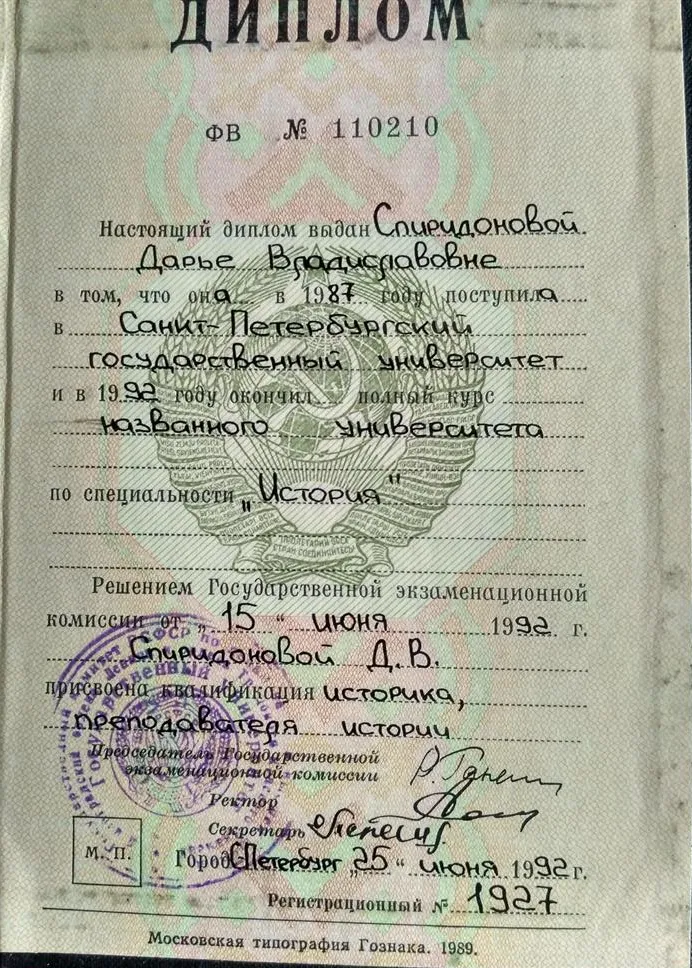 ДИПЛОМ
ФВ № 110210
Настоящий диплом выдан Спиридоновой
Дарье Владиславовне
в том, что она в 1987 году поступила
в Санкт-Петербургский
государственный университет
и в 1992 году окончил полный курс
названного университета
по специальности „История"
Решением Государственной экзаменационной
комиссии от „15“ июня 1992 г.
Спиридоновой Д.В.
присвоена квалификация историка,
преподавателя истории
Председатель Государственной
экзаменационной комиссии
Ректор
Секретарь
М. П.
Город С-Петербург „25“ июня 1992 г.
Регистрационный № 1927
Московская типография Гознака. 1989.